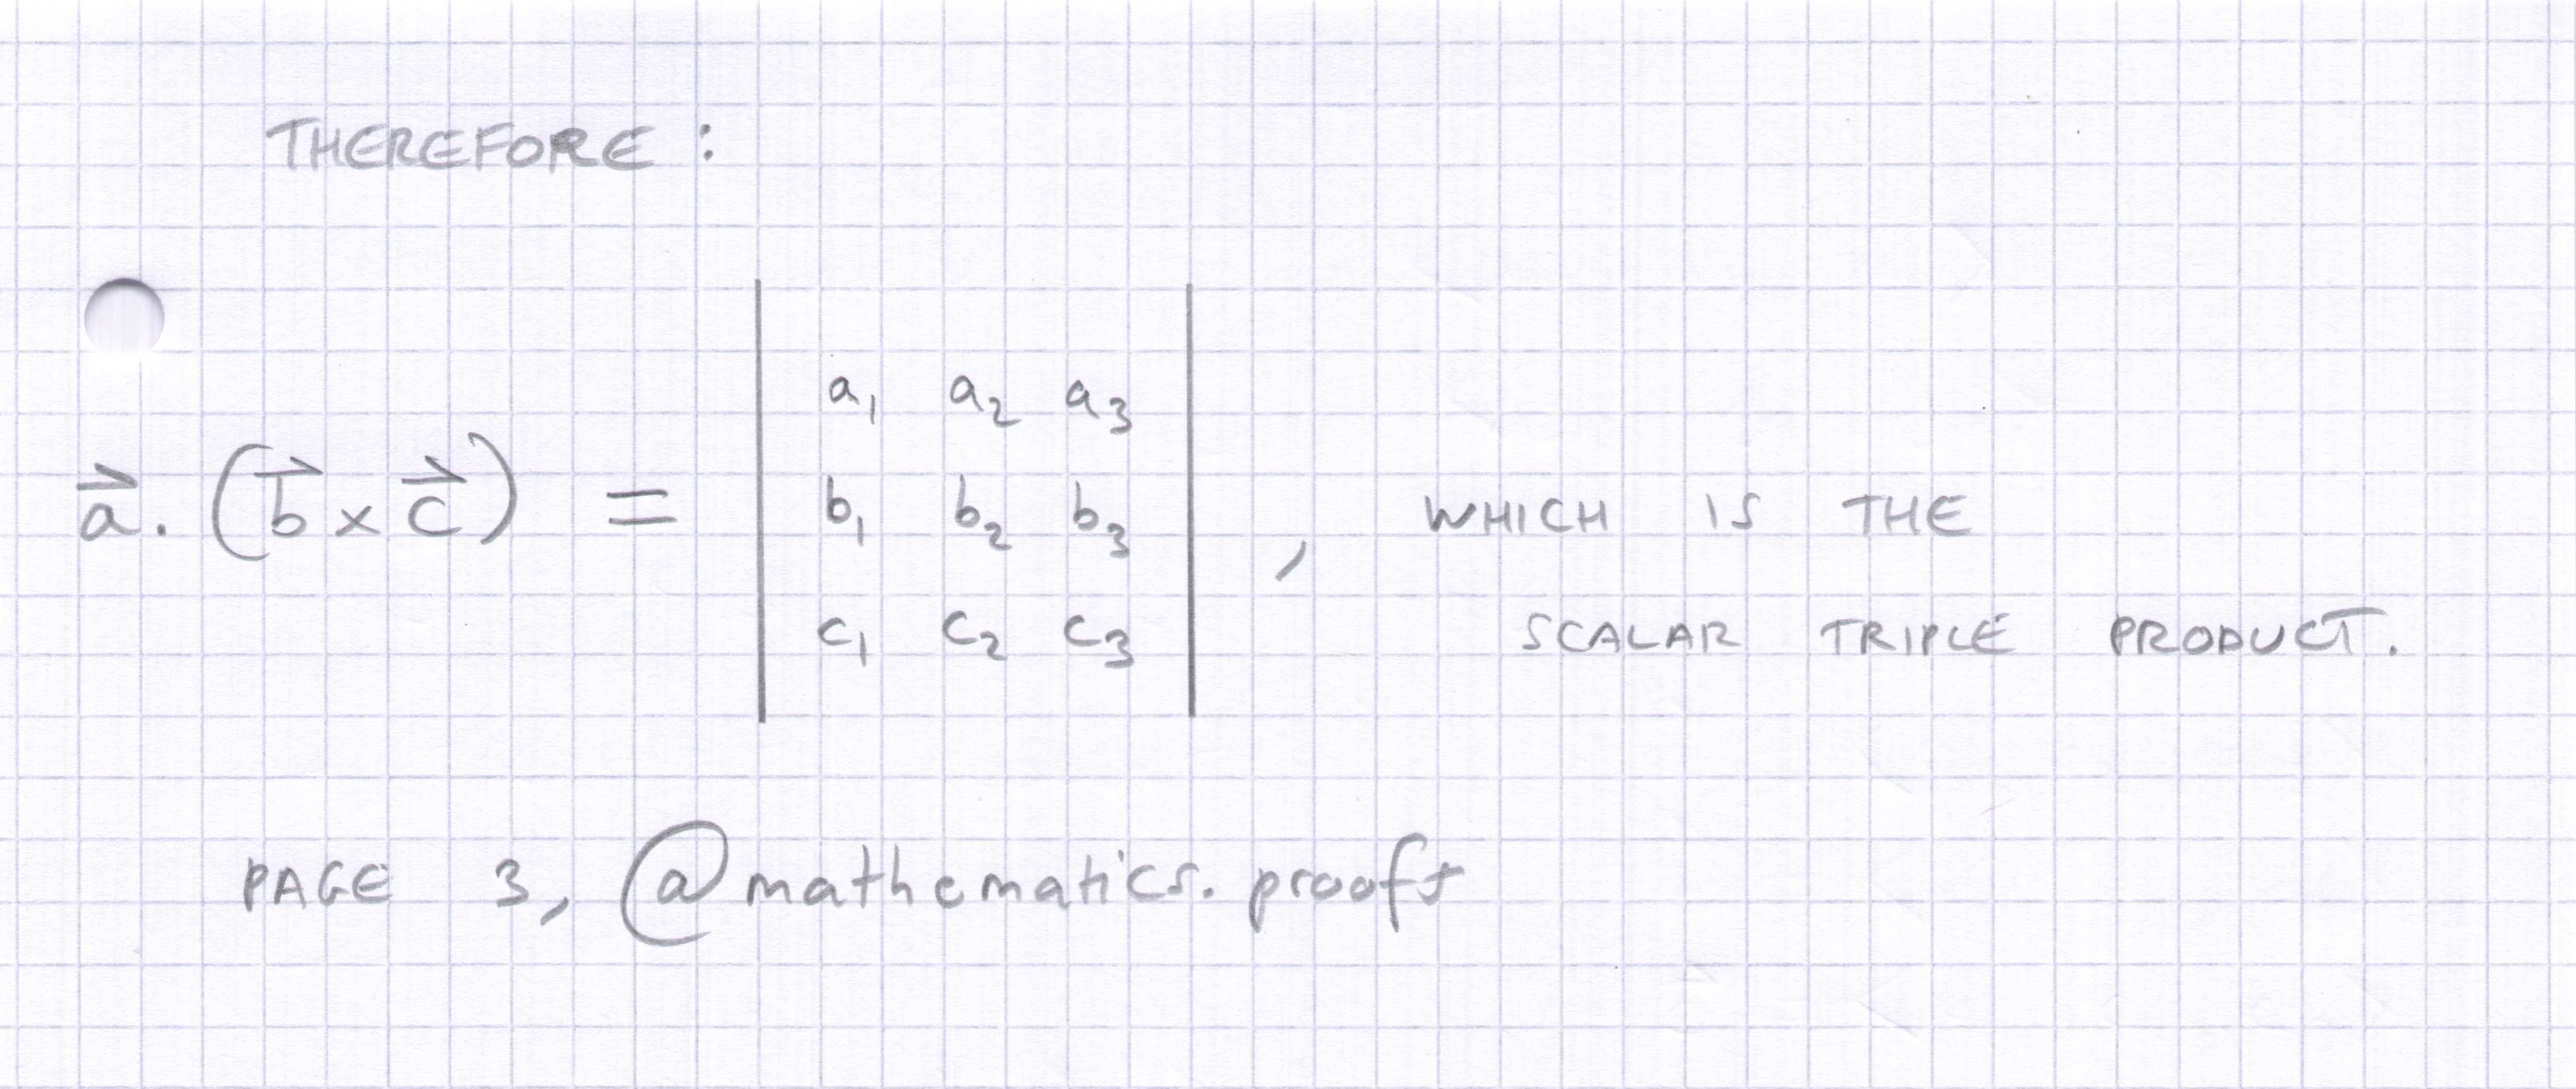 THEREFORE :
a⃗ . (b⃗ × c⃗) = | a₁ a₂ a₃ |
| b₁ b₂ b₃ | , WHICH IS THE
| c₁ c₂ c₃ | SCALAR TRIPLE PRODUCT.
PAGE 3, @mathematics.proofs